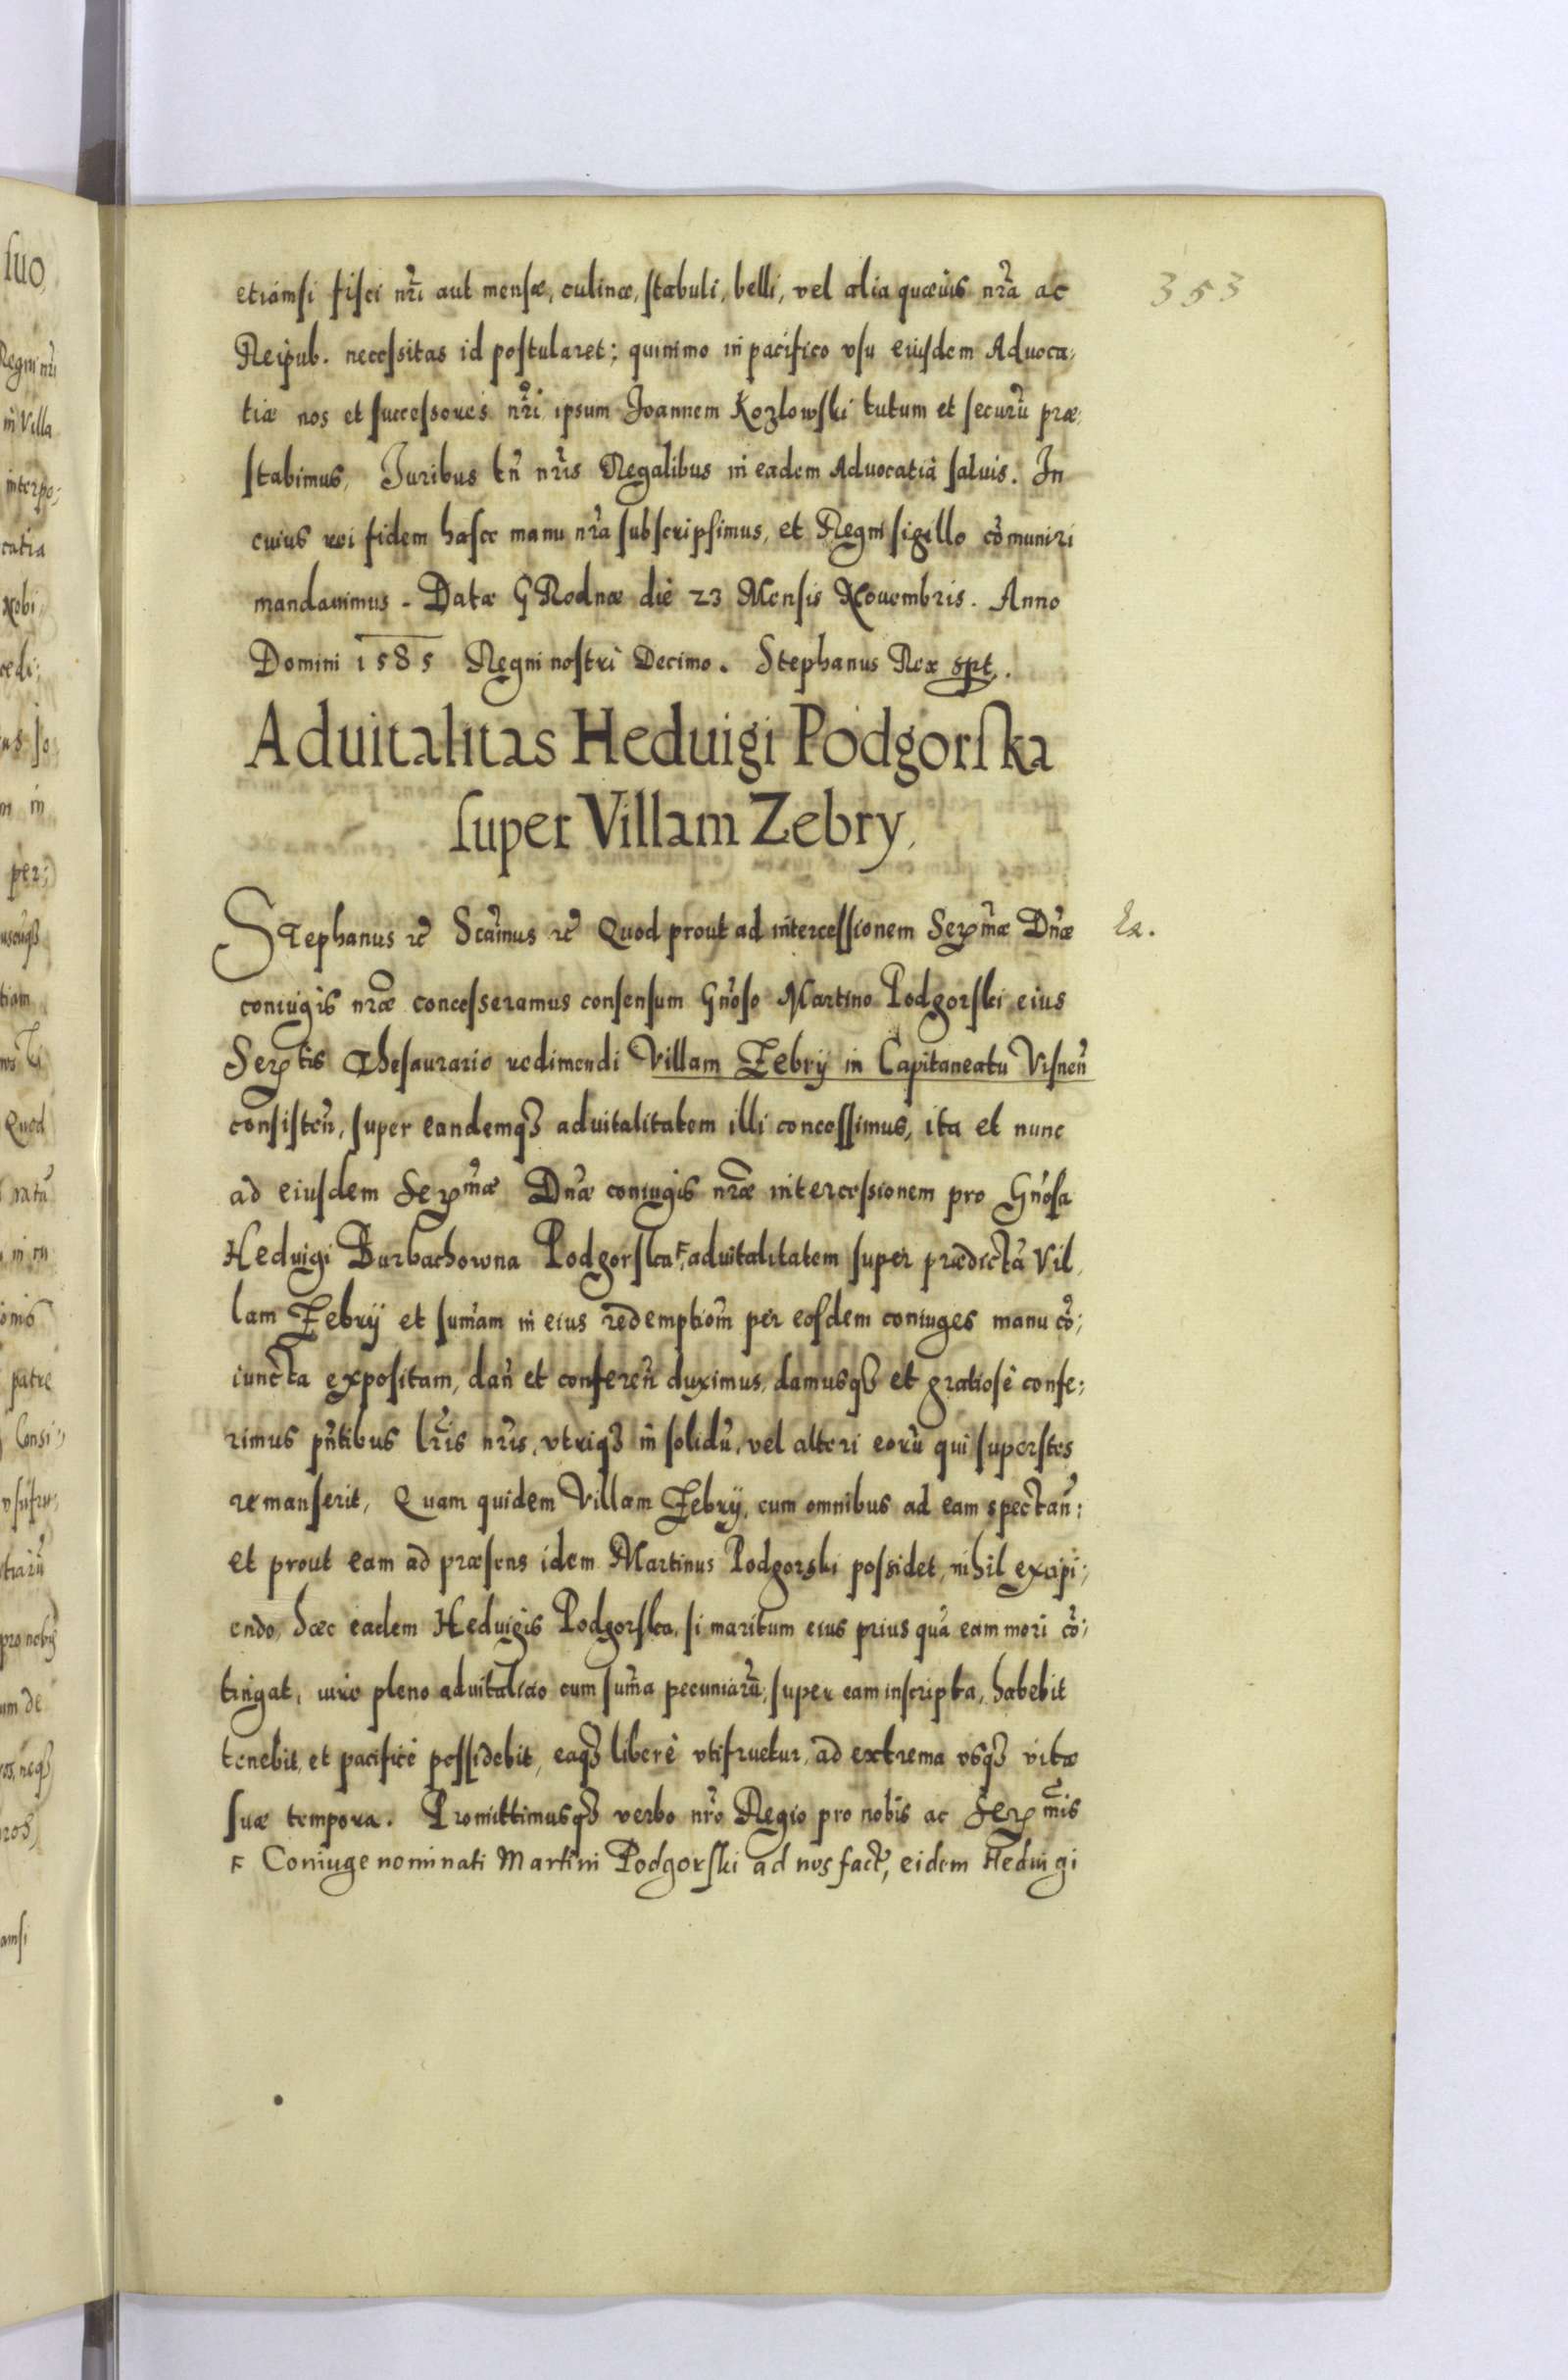 353
etiamsi fisci nr̃i aut mensæ, culinæ, stabuli, belli, vel alia quævis nr̃a ac
Reipub. necessitas id postularet; quinimo in pacifico vsu eiusdem Aduoca;
tiæ nos et successores nr̃i ipsum Joannem Kozlowski tutum et securũ præ;
stabimus, Juribus tñ nr̃is Regalibus in eadem Aduocatia saluis. In
cuius rei fidem hasce manu nr̃a subscripsimus, et Regni sigillo cõmuniri
mandauimus. Datæ GRodnæ die 23 Mensis Nouembris. Anno
Domini 1585 Regni nostri Decimo. Stephanus Rex spt.
Aduitalitas Heduigi Podgorska
super Villam Zebry,
Stephanus ꝛc̃ Scãmus ꝛc̃ Quod prout ad intercessionem Serm̃æ Dñæ
coniugis nr̃æ concesseramus consensum Gñoso Martino Podgorski eius
Sertis Thesaurario redimendi Villam Zebrÿ in Capitaneatu Visneñ
consisteñ, super eandemqꝫ aduitalitatem illi concessimus, ita et nunc
ad eiusdem Serm̃æ Dñæ coniugis nr̃æ intercessionem pro Gñosa
Heduigi Burbachowna Podgorska F, aduitalitatem super prædictã Vil,
lam Zebrÿ et sum̃am in eius redemptiom̃ per eosdem coniuges manu cõ;
iuncta expositam, dañ et confereñ duximus, damusqꝫ et gratiosè confe;
rimus pñtibus lr̃is nr̃is, vtriqꝫ in solidũ, vel alteri eorũ qui superstes
remanserit, Quam quidem Villam Zebrÿ, cum omnibus ad eam spectañ:
et prout eam ad præsens idem Martinus Podgorski possidet, nihil excipi;
endo, hæc eadem Heduigis Podgorska, si maritum eius prius quã eam mori cõ;
tingat, iure pleno aduitalicio cum sum̃a pecuniarũ, super eam inscripta, habebit
tenebit, et pacificè possidebit, eaqꝫ liberè vtifruetur, ad extrema vsqꝫ vitæ
suæ tempora. Promittimusqꝫ verbo nr̃o Regio pro nobis ac Serm̃is
F Coniuge nominati Martini Podgorski ad nos fact, eidem Heduigi